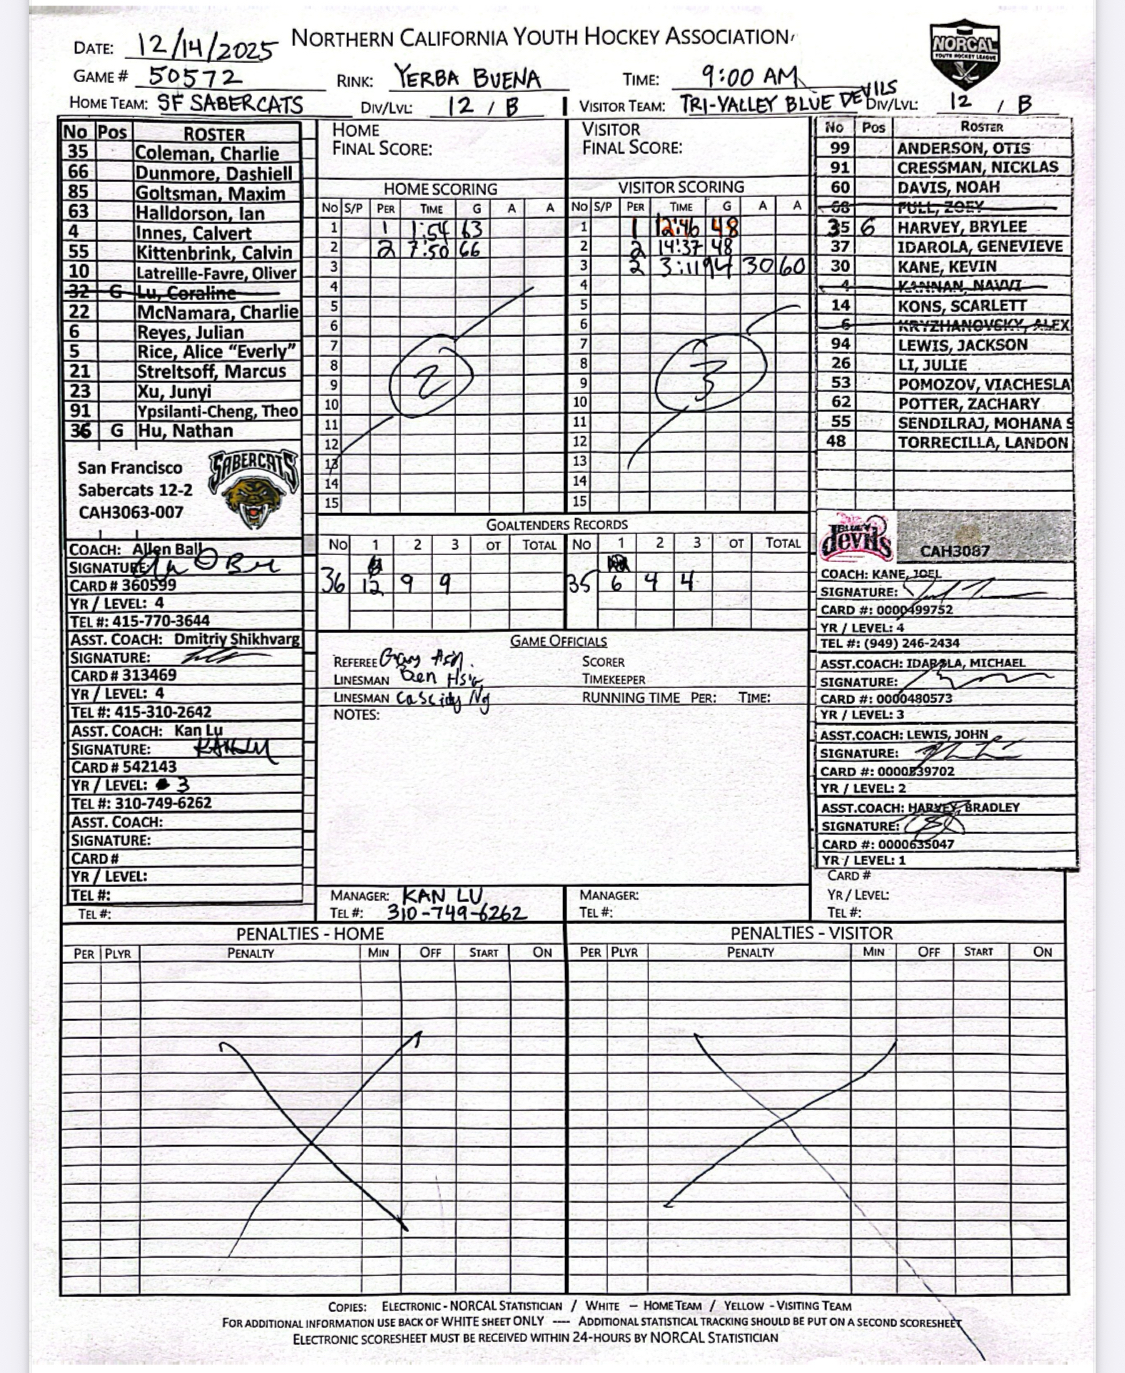 DATE: 12/14/2025 NORTHERN CALIFORNIA YOUTH HOCKEY ASSOCIATION
NORCAL
YOUTH HOCKEY LEAGUE
GAME # 50572 RINK: YERBA BUENA TIME: 9:00 AM
HOME TEAM: SF SABERCATS DIV/LVL: 12 / B VISITOR TEAM: TRI-VALLEY BLUE DEVILS DIV/LVL: 12 / B
No Pos ROSTER
35 Coleman, Charlie
66 Dunmore, Dashiell
85 Goltsman, Maxim
63 Halldorson, Ian
4 Innes, Calvert
55 Kittenbrink, Calvin
10 Latreille-Favre, Oliver
32 G Lu, Coraline
22 McNamara, Charlie
6 Reyes, Julian
5 Rice, Alice "Everly"
21 Streltsoff, Marcus
23 Xu, Junyi
91 Ypsilanti-Cheng, Theo
36 G Hu, Nathan
San Francisco
Sabercats 12-2
CAH3063-007
SABERCATS
COACH: Allen Ball
SIGNATURE:
CARD # 360599
YR / LEVEL: 4
TEL #: 415-770-3644
ASST. COACH: Dmitriy Shikhvarg
SIGNATURE:
CARD # 313469
YR / LEVEL: 4
TEL #: 415-310-2642
ASST. COACH: Kan Lu
SIGNATURE: KAN LU
CARD # 542143
YR / LEVEL: 3
TEL #: 310-749-6262
ASST. COACH:
SIGNATURE:
CARD #
YR / LEVEL:
TEL #:
TEL #:
HOME
FINAL SCORE:
HOME SCORING
NO S/P PER TIME G A A
1 1 1:54 63
2 2 7:50 66
3
4
5
6
7
8
9
10
11
12
13
14
15
2
VISITOR
FINAL SCORE:
VISITOR SCORING
NO S/P PER TIME G A A
1 1 12:46 48
2 2 14:37 48
3 2 3:11 94 30 60
4
5
6
7
8
9
10
11
12
13
14
15
3
GOALTENDERS RECORDS
NO 1 2 3 OT TOTAL NO 1 2 3 OT TOTAL
36 12 9 9 35 6 4 4
GAME OFFICIALS
REFEREE
LINESMAN Ben
LINESMAN Cassidy Ng
SCORER
TIMEKEEPER
RUNNING TIME PER: TIME:
NOTES:
MANAGER: KAN LU
TEL #: 310-749-6262
MANAGER:
TEL #:
No Pos ROSTER
99 ANDERSON, OTIS
91 CRESSMAN, NICKLAS
60 DAVIS, NOAH
68 FULL, ZOEY
35 G HARVEY, BRYLEE
37 IDAROLA, GENEVIEVE
30 KANE, KEVIN
4 KANNAN, NAVVI
14 KONS, SCARLETT
6 KRYZHANOVSKY, ALEX
94 LEWIS, JACKSON
26 LI, JULIE
53 POMOZOV, VIACHESLA
62 POTTER, ZACHARY
55 SENDILRAJ, MOHANA S
48 TORRECILLA, LANDON
BLUE devils
CAH3087
COACH: KANE, JOEL
SIGNATURE:
CARD #: 0000499752
YR / LEVEL: 4
TEL #: (949) 246-2434
ASST.COACH: IDAROLA, MICHAEL
SIGNATURE:
CARD #: 0000480573
YR / LEVEL: 3
ASST.COACH: LEWIS, JOHN
SIGNATURE:
CARD #: 0000839702
YR / LEVEL: 2
ASST.COACH: HARVEY, BRADLEY
SIGNATURE:
CARD #: 0000635047
YR / LEVEL: 1
CARD #
YR / LEVEL:
TEL #:
PENALTIES - HOME
PER PLYR PENALTY MIN OFF START ON
PENALTIES - VISITOR
PER PLYR PENALTY MIN OFF START ON
COPIES: ELECTRONIC - NORCAL STATISTICIAN / WHITE – HOME TEAM / YELLOW - VISITING TEAM
FOR ADDITIONAL INFORMATION USE BACK OF WHITE SHEET ONLY ---- ADDITIONAL STATISTICAL TRACKING SHOULD BE PUT ON A SECOND SCORESHEET
ELECTRONIC SCORESHEET MUST BE RECEIVED WITHIN 24-HOURS BY NORCAL STATISTICIAN